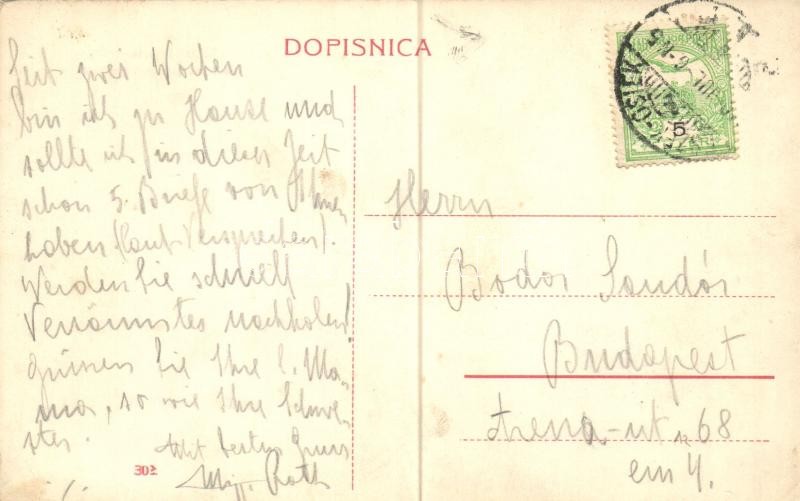 DOPISNICA
Seit zwei Wochen
bin ich zu Hause und
sollte ich in dieser Zeit
schon 5. Briefe von Ihnen
haben (laut Versprechen).
Werden Sie schnell
Versäumtes nachholen!
grüssen Sie Ihre l. Ma-
ma, so wie Ihre Schwe-
ster.
Mit besten Gruss
Roth
302
5
Herrn
Bodor Sándór
Budapest
Arena-út 68
em 4.